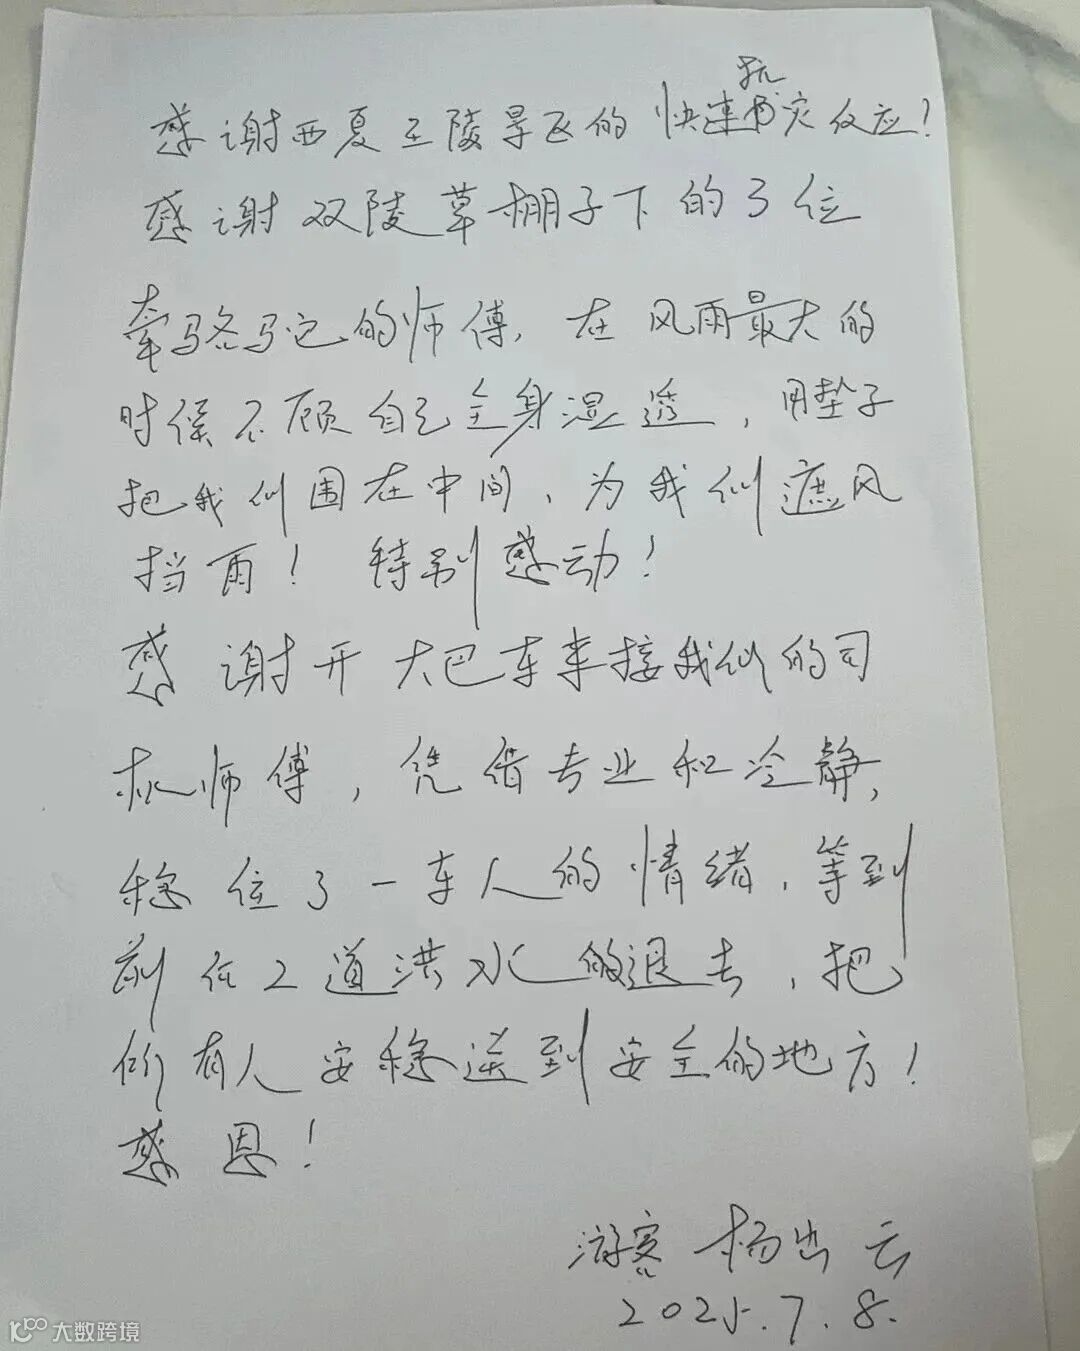 感谢西夏王陵景区的快速抗灾反应!
感谢双陵草棚子下的3位
牵骆驼的师傅,在风雨最大的
时候不顾自己全身湿透,用垫子
把我们围在中间,为我们遮风
挡雨!特别感动!
感谢开大巴车来接我们的司
机师傅,凭借专业和冷静,
稳住了一车人的情绪,等到
前任2道洪水的退去,把
所有人安稳送到安全的地方!
感恩!
游客 杨出云
2025.7.8.
大数跨境